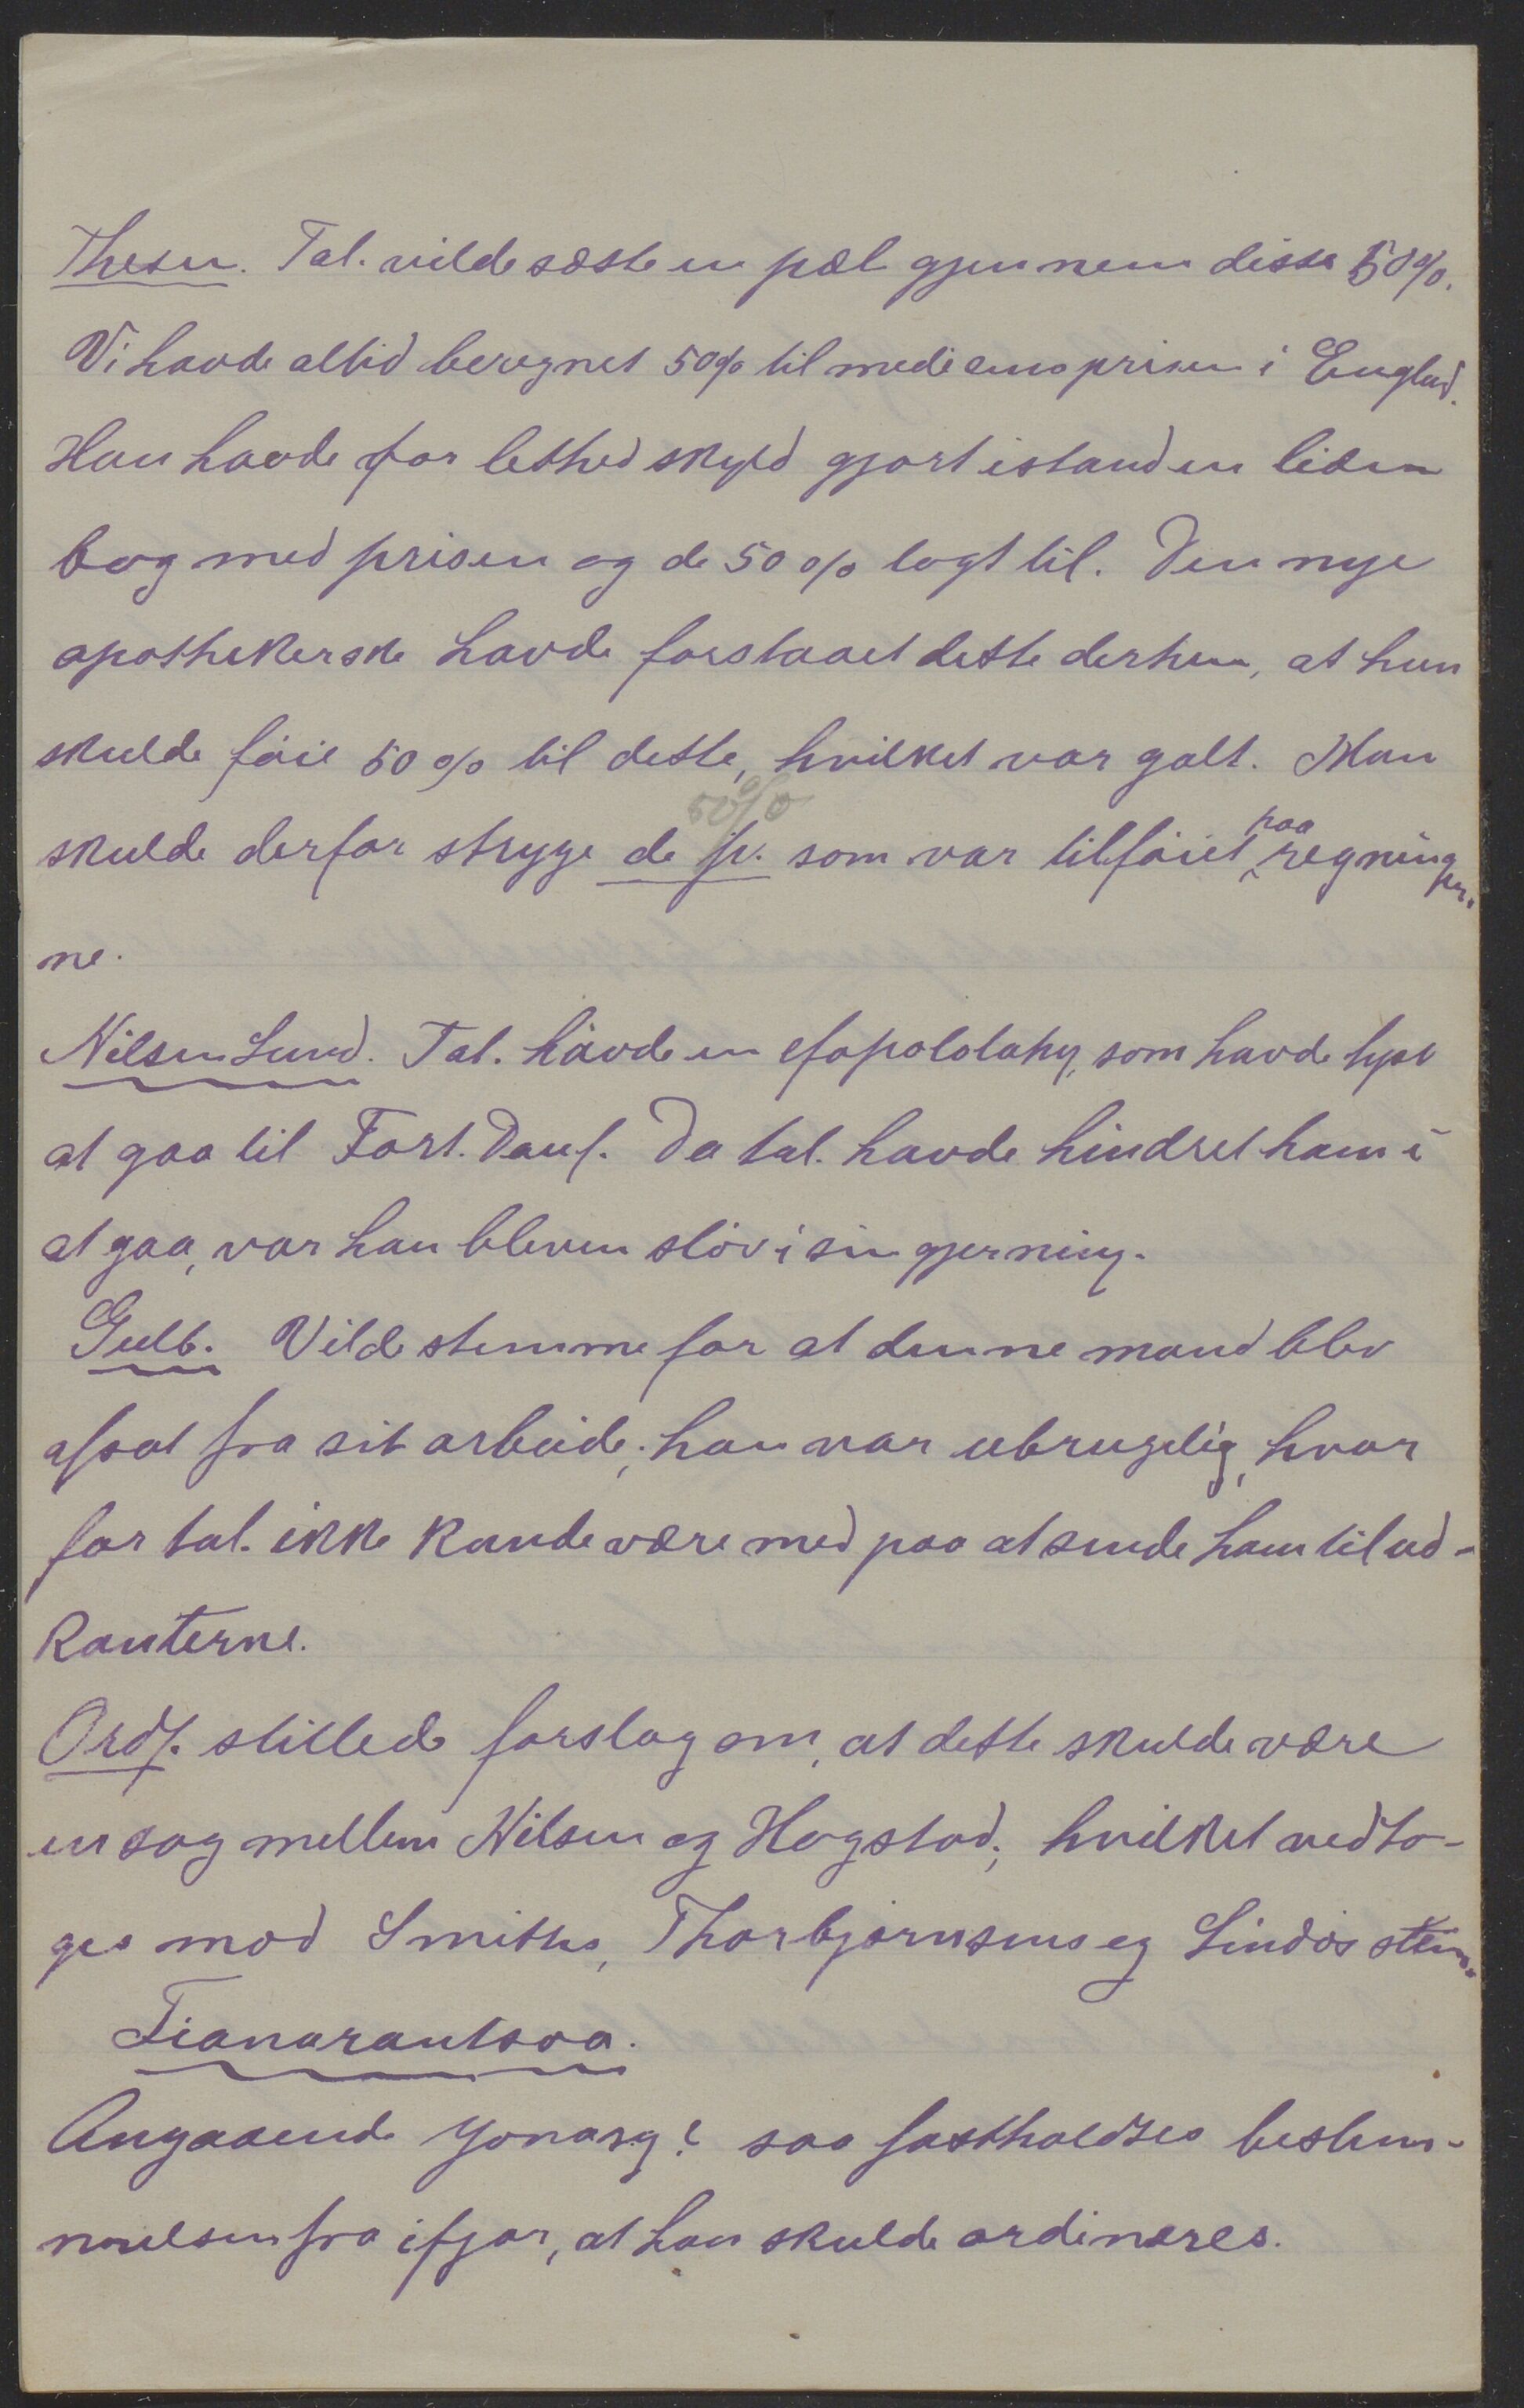 Thesen. Tal. vilde sæste en pæl gjennem disse 50%.
Vi havde altid beregnet 50% til medicinsprisen i England.
Han havde for lethed skyld gjort istand en liden
bog med prisen og de 50% lagt til. Den nye
apothekerske havde forstaaet dette derhen, at hun
skulde føie 50% til dette, hvilket var galt. Man
50%
skulde derfor stryge de p. som var tilføiet paa regninger-
ne.
Nilsen Lund. Tal. havde en efapololahy, som havde lyst
at gaa til Fort. Dauf. Da tal. havde hindret ham i
at gaa, var han bleven sløv i sin gjerning.
Gulb. Vilde stemme for at denne mand blev
afsat fra sit arbeide; han var ubrugelig, hvor
for tal. ikke kunde være med paa at sende ham til ud-
kanterne.
Ordf. stillede forslag om, at dette skulde være
en sag mellem Nilsen og Hogstad; hvilket vedto-
ges mod Smiths, Thorbjørnsens og Lindøs stem.
Fianarantsoa.
Angaaende Jonasy? saa fastholdtes bestem-
melsen fra ifjor, at han skulde ordineres.